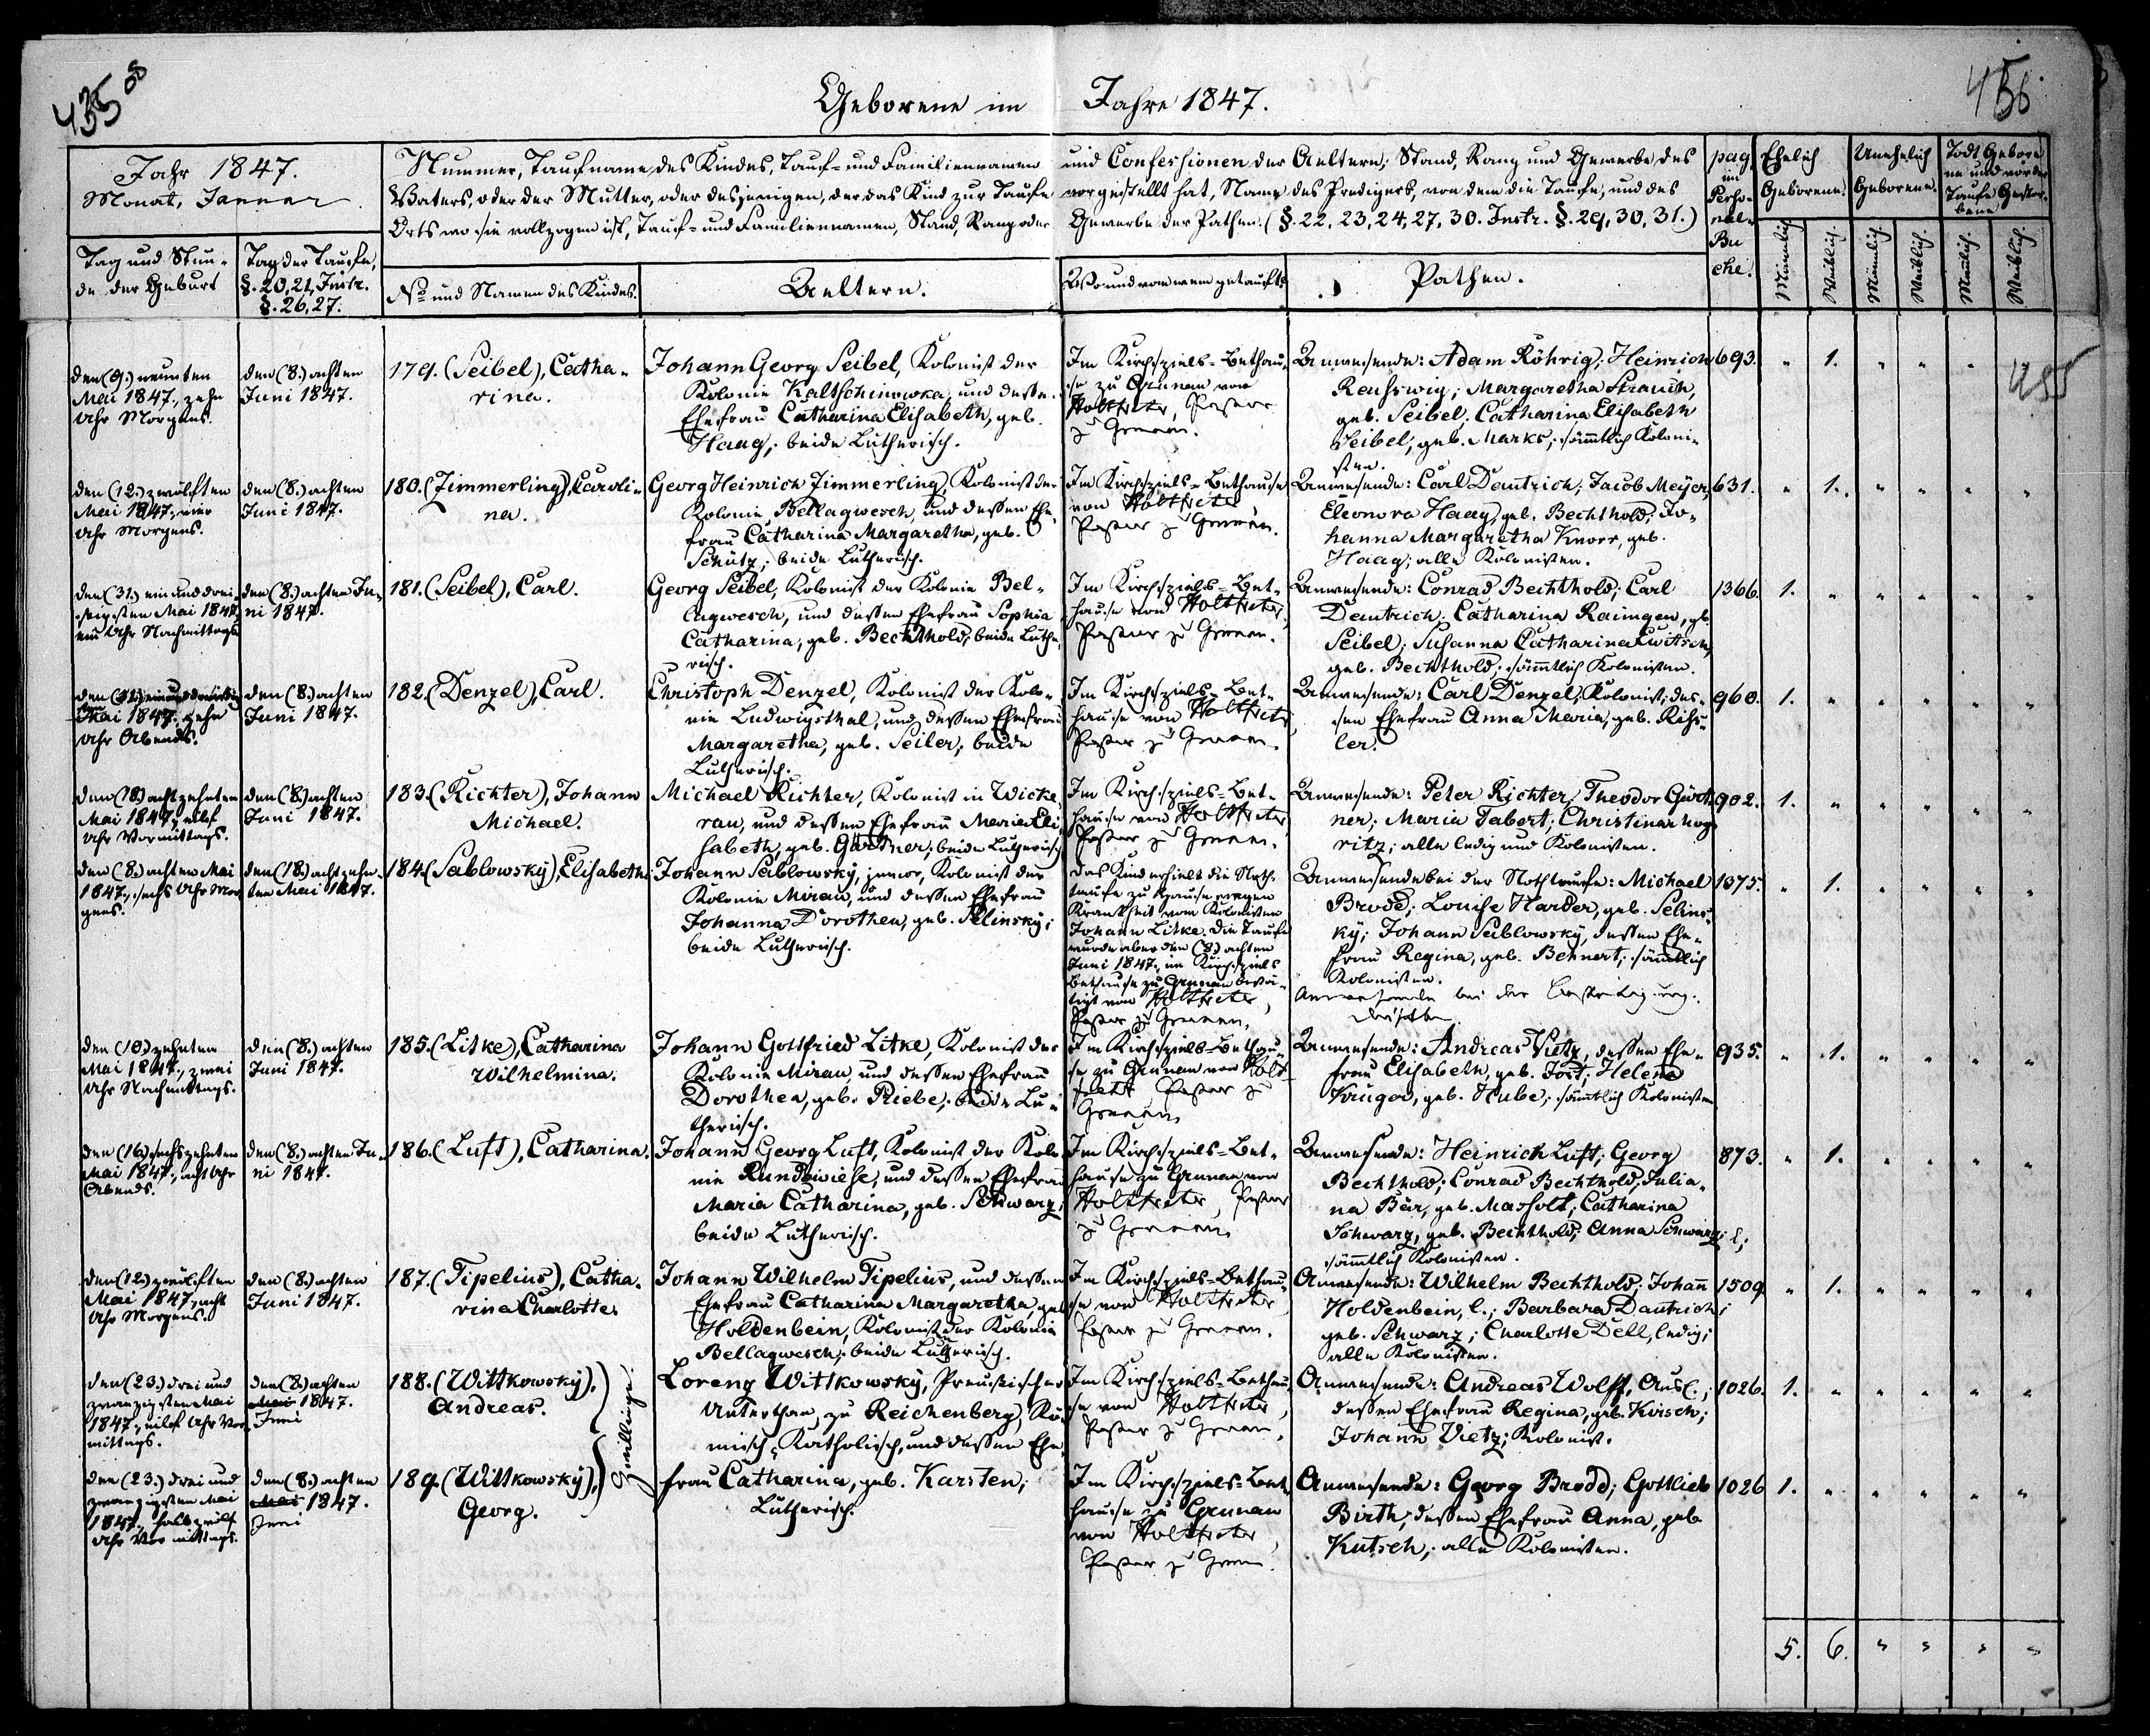 435
08
456
Geborene im Jahre 1847.
Jahr 1847.
Monat, Januar
Nummer, Taufname des Kindes, Tauf- und Familiennamen und Confessionen der Aeltern; Stand, Rang und Gewerbe des
Vaters, oder der Mutter, oder desjenigen, der das Kind zur Taufe vorgestellt hat, Name des Predigers, von dem die Taufe, und des
Orts wo sie vollzogen ist, Tauf- und Familiennamen, Stand, Rang oder Gewerbe der Pathen. (§. 22, 23, 24, 27, 30. Instr. §. 29, 30, 31.)
pag.
im
Perso-
nal-
Bu
che.
Ehelich
Geborene.
Unehelich
Geborene.
Todt Gebore
ne und vor der
Taufe Gestor-
bene
Tag und Stun-
de der Geburt
Tag der Taufe,
§. 20, 21, Instr.
§. 26, 27.
No und Namen des Kindes.
Aeltern.
Wo und von wem getauft.
Pathen.
Männlich.
Weiblich.
Männlich.
Weiblich.
Männlich.
Weiblich.
den (9.) neunten
Mai 1847., zehn
Uhr Morgens.
den (8.) achten
Juni 1847.
179. (Seibel), Catha-
rina.
Johann Georg Seibel, Kolonist der
Kolonie Kaltschinowka, und dessen
Ehefrau Catharina Elisabeth, geb.
Haag; beide Lutherisch.
Im Kirchspiels-Bethau-
se zu Grunau von
Holtfreter, Pastor
zu Grunau.
Anwesende: Adam Röhrig; Heinrich
Reuswig; Margaretha Strauch,
geb. Seibel; Catharina Elisabeth
Seibel, geb. Marks; sämmtlich Koloni-
sten.
693. " 1. " " "
455
den (12.) zwölften
Mai 1847., vier
Uhr Morgens.
den (8.) achten
Juni 1847.
180. (Zimmerling), Caroli-
na.
Georg Heinrich Zimmerling, Kolonist der
Kolonie Bellagwesch, und dessen Ehe-
frau Catharina Margaretha, geb.
Schütz; beide Lutherisch.
Im Kirchspiels-Bethause
von Holtfreter
Pastor zu Grunau.
Anwesende: Carl Deutrich; Jacob Meyer;
Eleonora Haag, geb. Bechthold; Jo-
hanna Margaretha Knorr, geb.
Haag; alle Kolonisten.
631. " 1. " " " "
den (31.) ein und drei-
ssigsten Mai 1847.,
ein Uhr Nachmittags
den (8.) achten Ju-
ni 1847.
181. (Seibel), Carl.
Georg Seibel, Kolonist der Kolonie Bel-
lagwesch, und dessen Ehefrau Sophia
Catharina, geb. Bechthold; beide Luthe-
risch.
Im Kirchspiels-Bet-
hause von Holtfreter,
Pastor zu Grunau.
Anwesende: Conrad Bechthold; Carl
Deutrich; Catharina Raimgen, gb.
Seibel; Susanna Catharina
geb. Bechthold; sämmtlich Kolonisten.
1366. 1. " " " " "
Mai 1847., zehn
Uhr Abends.
den (8.) achten
Juni 1847.
182. (Denzel), Carl.
Christoph Denzel, Kolonist der Kolo-
nie Ludwigsthal, und dessen Ehefrau
Margaretha, geb. Seiler; beide
Lutherisch.
Im Kirchspiels-Bet-
hause von Holtfreter
Pastor zu Grunau.
Anwesende: Carl Denzel, Kolonist; des-
sen Ehefrau Anna Maria, geb. Riss-
ler.
960. 1. " " " " "
den (18.) achtzehnten
Mai 1847., eilf
Uhr Vormittags.
den (8.) achten
Juni 1847.
183. (Richter), Johann
Michael.
Michael Richter, Kolonist in Wicke-
rau, und dessen Ehefrau Maria Eli-
sabeth, geb. Gärtner; beide Lutherisch
Im Kirchspiels-Bet-
hause von Holtfreter
Pastor zu Grunau.
Anwesende: Peter Richter; Theodor Gärt-
ner; Maria Tabert; Christina
ritz; alle ledig und Kolonisten.
902. 1. " " " " "
den (8.) achten Mai
1847., sechs Uhr Mor-
gens.
den (18.) achtzehn-
ten Mai 1847.
184. (Sablowsky), Elisabeth.
Johann Sablowsky, junior, Kolonist der
Kolonie Mirau, und dessen Ehefrau
Johanna Dorothea, geb. Selinsky;
beide Lutherisch.
Das Kind erhielt die Noth-
taufe zu Hause wegen
Krankheit vom Kolonisten
Johann Litke. Die Taufe
wurde aber den (8.) achten
Juni 1847., im Kirchspiels
Bethause zu Grunau bestä-
tigt von Holtfreter,
Pastor zu Grunau.
Anwesende bei der Nothtaufe: Michael
Brodd; Louise Harder, geb. Selins-
ky; Johann Sablowsky, dessen Ehe-
frau Regina, geb. Behnert; sämmtlich
Kolonisten.
Anwesende bei der Bestätigung:
dieselben
1375. " 1. " " " "
den (10.) zehnten
Mai 1847., zwei
Uhr Nachmittags.
den (8.) achten
Juni 1847.
185. (Litke), Catharina
Wilhelmina.
Johann Gottfried Litke, Kolonist der
Kolonie Mirau, und dessen Ehefrau
Dorothea, geb. Priebe; beide Lu-
therisch.
Im Kirchspiels-Bethau-
se zu Grunau von Holt-
freter Pastor zu
Grunau
Anwesende: Andreas Vietz, dessen Ehe-
frau Elisabeth, geb. Jost; Helena
Krüger, geb. Hube; sämmtlich Kolonisten
935. " 1. " " " "
den (16.) sechszehnten
Mai 1847., acht Uhr
Abends.
den (8.) achten Ju-
ni 1847.
186. (Luft), Catharina.
Johann Georg Luft, Kolonist der Kolo-
nie Rundewiese, und dessen Ehefrau
Maria Catharina, geb. Schwarz;
beide Lutherisch.
Im Kirchspiels-Bet-
hause zu Grunau von
Holtfreter, Pastor
zu Grunau
Anwesende: Heinrich Luft; Georg
Bechthold; Conrad Bechthold; Julia-
na Bär, geb. Massolt; Catharina
Schwarz, geb. Bechthold; Anna Schwarz, l;
sämmtlich Kolonisten.
873. " 1. " " " "
den (12.) zwölften
Mai 1847., acht
Uhr Morgens.
den (8.) achten
Juni 1847.
187. (Tipelius), Catha-
rina Charlotte.
Johann Wilhelm Tipelius, und dessen
Ehefrau Catharina Margaretha, geb.
Holdenbein, Kolonist der Kolonie
Bellagwesch; beide Lutherisch.
Im Kirchspiels-Bethau-
se von Holtfreter
Pastor zu Grunau.
Anwesende: Wilhelm Bechthold; Johann
Holdenbein, l.; Barbara Dautrich,
geb. Schwarz; Charlotte Dell, ledig;
alle Kolonisten.
1509 " 1. " " " "
den (23.) drei und
zwanzigsten Mai
1847., eilf Uhr Vor-
mittags.
den (8.) achten
Mai 1847.
Juni
188. (Wittkowsky),
Andreas.
Zwillinge.
Lorenz Wittkowsky, Preußischer
Unterthan, zu Reichenberg, Rö-
misch-Katholisch, und dessen Ehe-
Im Kirchspiels-Bethau-
se von Holtfreter,
Pastor zu Grunau.
Anwesende: Andreas Wolff, Ausl.;
dessen Ehefrau Regina, geb. Kirsch;
Johann Vietz; Kolonist.
1026. 1. " " " " "
den (23.) drei und
zwanzigsten Mai
1847., halb zwölf
Uhr Vormittags.
den (8.) achten
Mai 1847.
Juni
189. (Wittkowsky),
Georg.
frau Catharina, geb. Karsten;
Lutherisch.
Im Kirchspiels-Bet-
hause zu Grunau
von Holtfreter,
Pastor zu Grunau.
Anwesende: Georg Brodd; Gottlieb
Birth, dessen Ehefrau Anna, geb.
Kutsch; alle Kolonisten.
1026 1. " " " " "
5. 6. " " " "